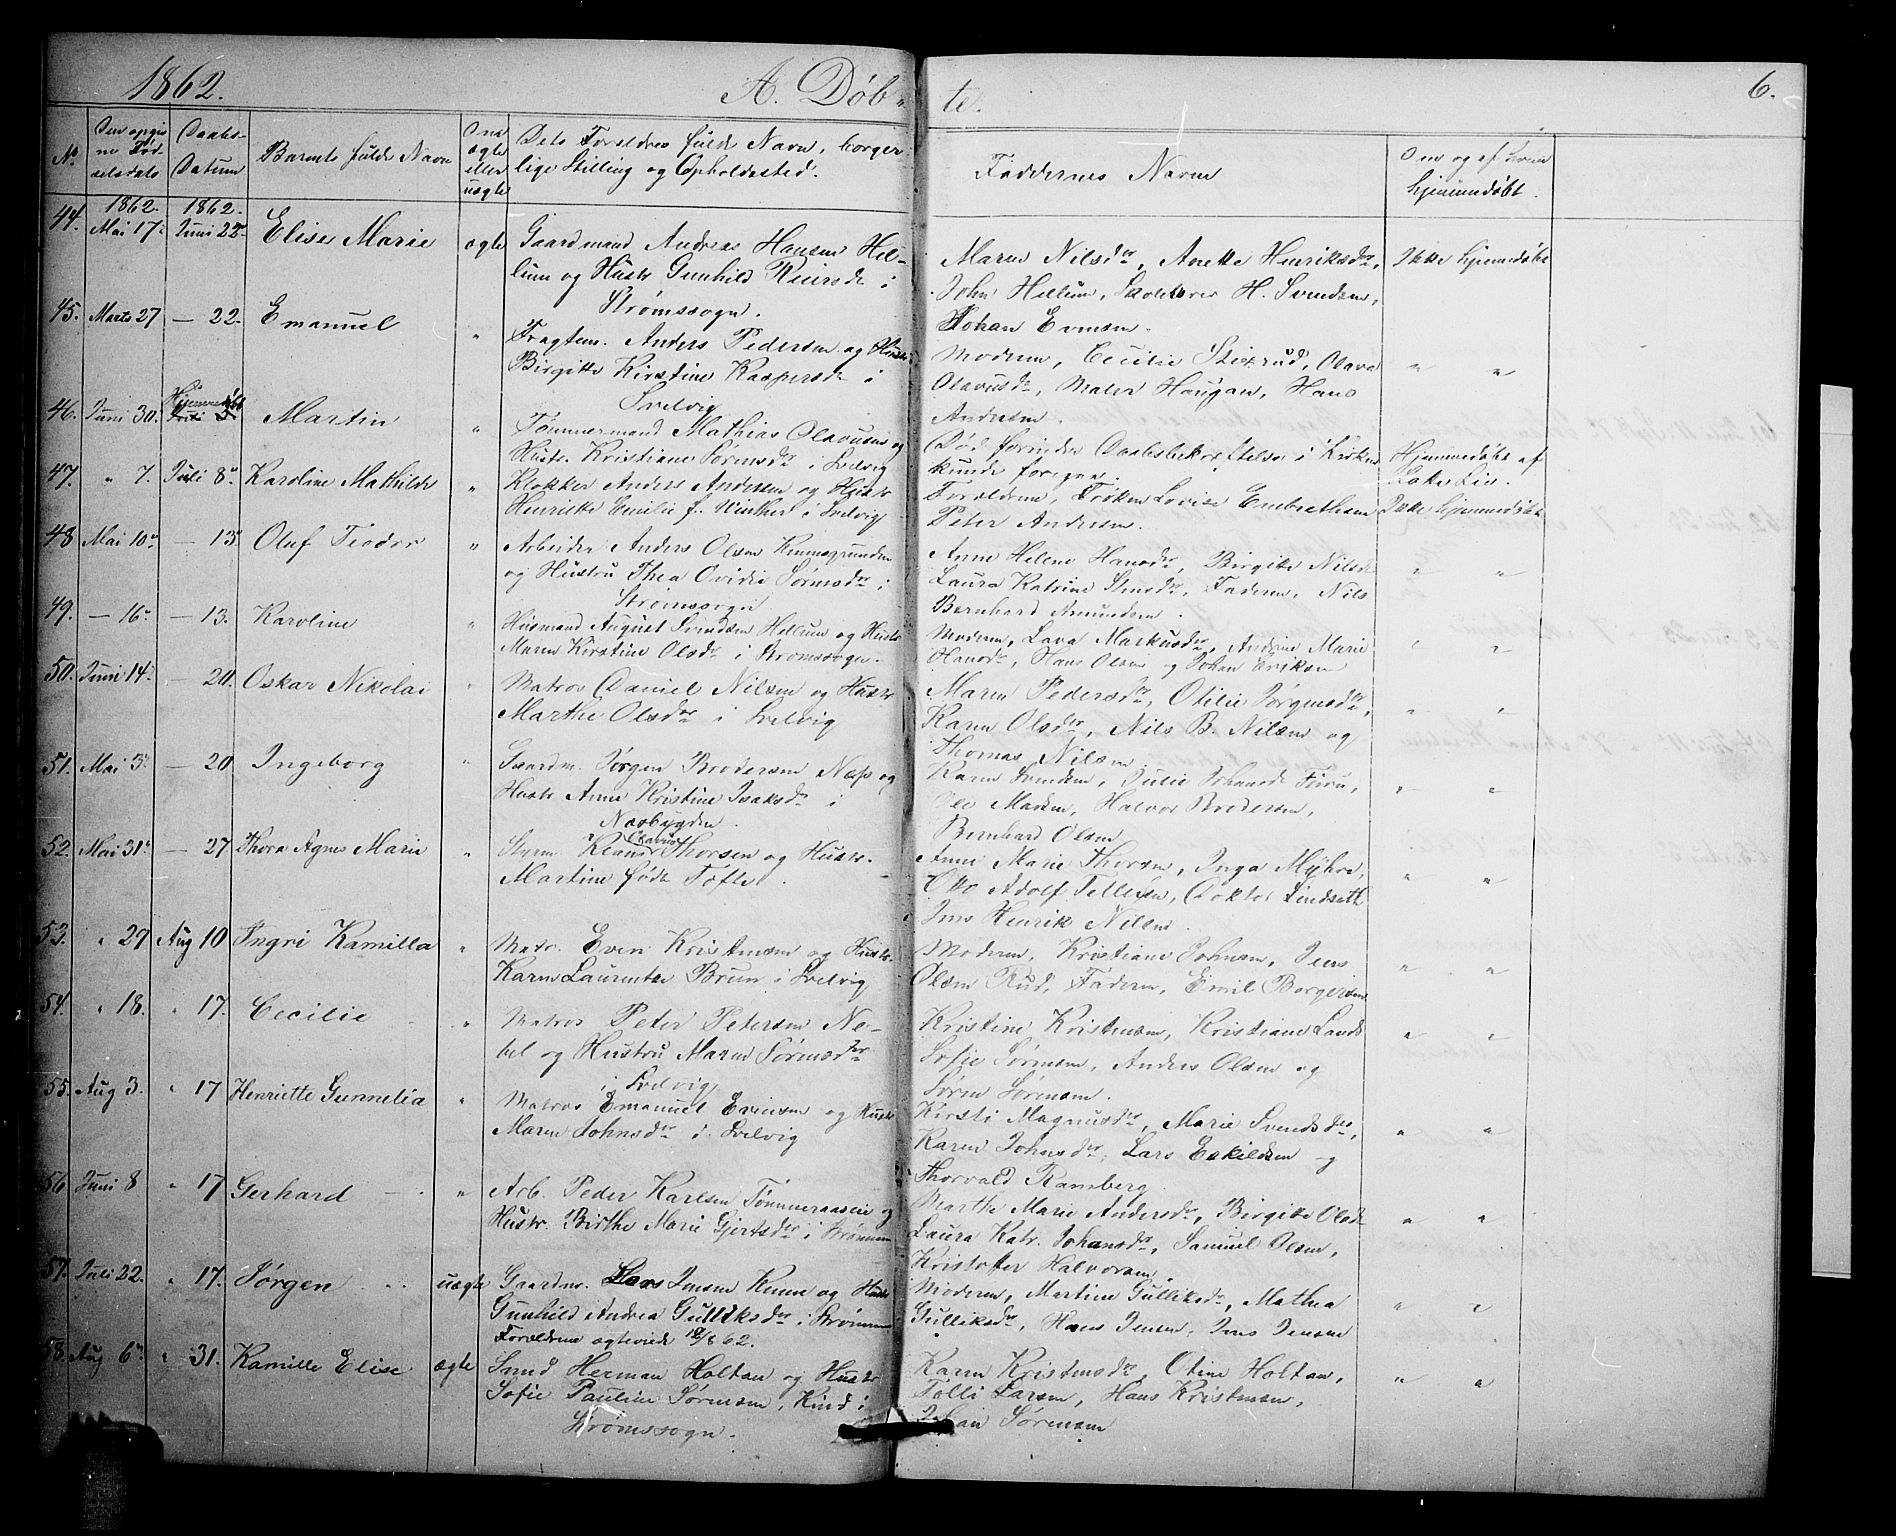 1862. A. Døb- te. 6.
No. Den opgivne Fødselsdato Daabs-Datum Barnets fulde Navn Om ægte eller uægte Dets Forældres fulde Navn, borgerlige Stilling og Opholdssted. Faddernes Navne Om og af hvem hjemmedøbt.
1862. 1862.
44. Mai 17. Juni 22 Elise Marie ægte Gaardmand Andreas Hansen Hel-
lum og Hustr Gunhild i
Strømssogn.
Maren Nilsdr, Anette Henriksdr, Ikke hjemmedøbt
John Hellum, H. Svendsen,
Johan Evensen.
45. Marts 27 — 22. Emanuel " Fragtem. Anders Pedersen og Hustr
Birgitte Kirstine Kaspersdr i
Svelvig
Moderen, Cecilie Stixrud, Olava " "
Olavusdr, Haugan, Hans
Andresen.
46. Juni 30. Hjemmedøbt Juli 5 Martin " Tømmermand Mathias Olavusen og
Hustr. Kristiane Sørensdr i Svelvig
Død forinden Daabsbekræftelse i Kirken Hjemmedøbt af
kunde foregaa. Lie.
47. " 7. Juli 8. Karoline Mathilde " Klokker Anders Andersen og Hustr
Henriette Emilie f. Winther i Svelvig
Forældrene, Frøken Lovise Embrethsen Ikke hjemmedøbt
Peter Andresen.
48 Mai 10. — 13. Oluf Teodor " Arbeider Anders Olsen
og Hustru Thea Ovidie Sørensdr i
Strømssogn
Anne Helene Hansdr, Birgitte Nilsdr " "
Laura Katrine, Faderen, Nils
Bernhard Amundsen.
49. — 16. — 13. Karoline " Husmand August Svendsen Hellum og Hustr
Maren Kirstine Olsdr i Strømssogn.
Moderen, Lava Markusdr, Andrine Marie " "
Hansdr, Hans Olsen og Johan Eriksen
50. Juni 14. — 20. Oskar Nikolai " Matros Daniel Nilsen og Hustr
Marthe Olsdr i Svelvig
Maren Pedersdr, Otilie Jørgensdr, " "
Karen Olsdr, Nils B. Nilsen og
Thomas Nilsen
51. Mai 3. — 20 Ingeborg " Gaardm. Jørgen Brodersen Næss og
Hustr Anne Kristine Isaksdr i
Nesbygden.
Karen Svendsen, Julie Johansdr " "
Ole Madsen, Halvor Brodersen,
Bernhard Olsen
52. Mai 31. — 27 Thora Agnes Marie " Styrm Klaus Olavus Thorsen og Hustr.
Martine født Tofte.
Anne Marie Thorsen, Inga Myhre, " "
Otto Adolf Tellefsen, Doktor Lindseth
Jens Henrik Nilsen.
53. " 29 Aug 10 Ingri Kamilla " Matr. Even Kristensen og Hustr.
Karen Laurentze Bruun i Svelvig
Moderen, Kristiane Johnsen, Jens " "
Olsen Rud, Faderen, Emil Borgersen.
54. " 18. " 17. Cecilie " Matros Peter Petersen Ne-
bel og Hustru Maren Sørensdr
i Svelvig
Kristine Kristensen, Kristiane Lande " "
Sofie Sørensen, Anders Olsen og
Søren Sørensen.
55. Aug 3. " 17 Henriette Gunnelia " Matros Emanuel Evensen og Hustr
Maren Johnsdr i Svelvig
Kirsti Magnusdr, Marie Svendsdr, " "
Karen Johnsdr, Lars Eskildsen og
Thorvald Ramberg
56 Juni 8 " 17 Gerhard " Arb. Peder Karlsen Tømmeraasen og
Hustr. Birthe Marie Gjertsdr i Strømmen
Marthe Marie Andersdr, Birgitte Olsdr " "
Laura Katr. Johansdr, Samuel Olsen,
Kristoffer Halvorsen
57. Juli 22. " 17. Jørgen uægte Gaardm. Lars Jensen Kinne og Hustr
Gunhild Andrea Gulliksdr i Strømmen
Forældrene ægteviede 17/8 62.
Moderen, Martine Gulliksdr, Mathea " "
Gulliksdr, Hans Jensen, Jens Jensen
58. Aug 6. " 31. Kamille Elise ægte Smed Herman Holtan og Hustr
Sofie Pauline Sørensen, Kind i
Strømssogn.
Karen Kristensdr, Otine Holtan, " "
Larsen, Hans Kristensen,
Johan Sørensen